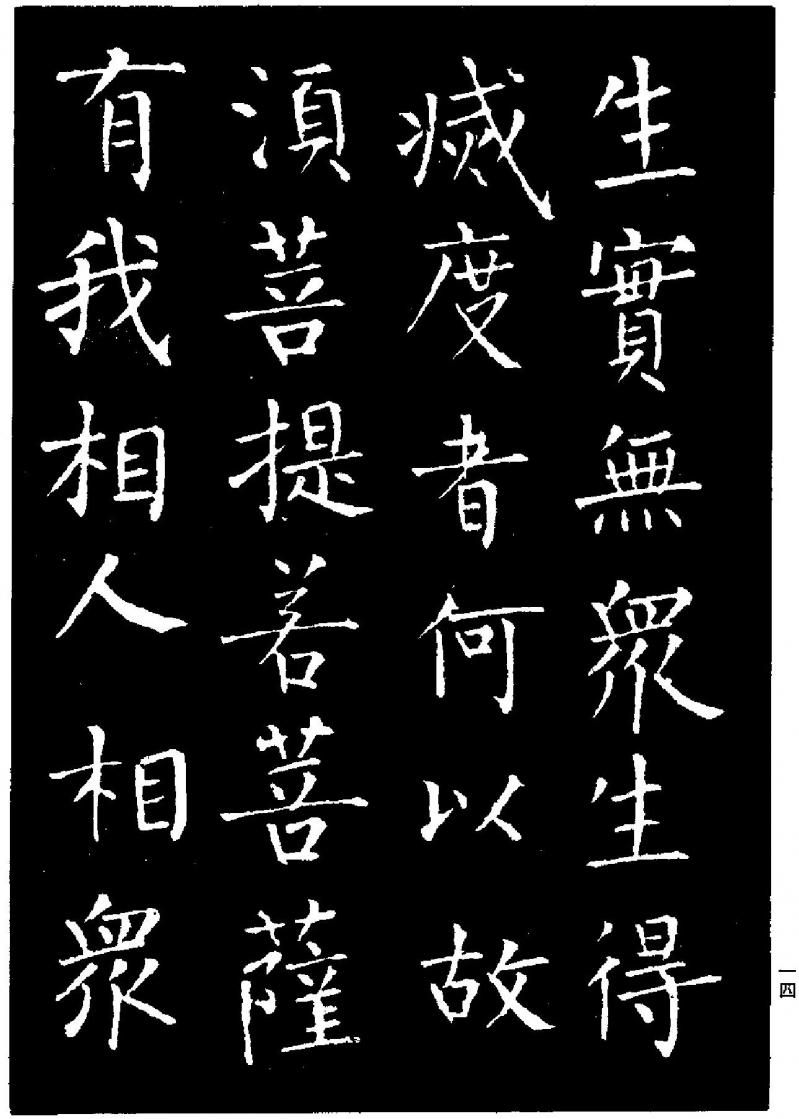 生實無眾生得
滅度者何以故
須菩提若菩薩
有我相人相眾
一四